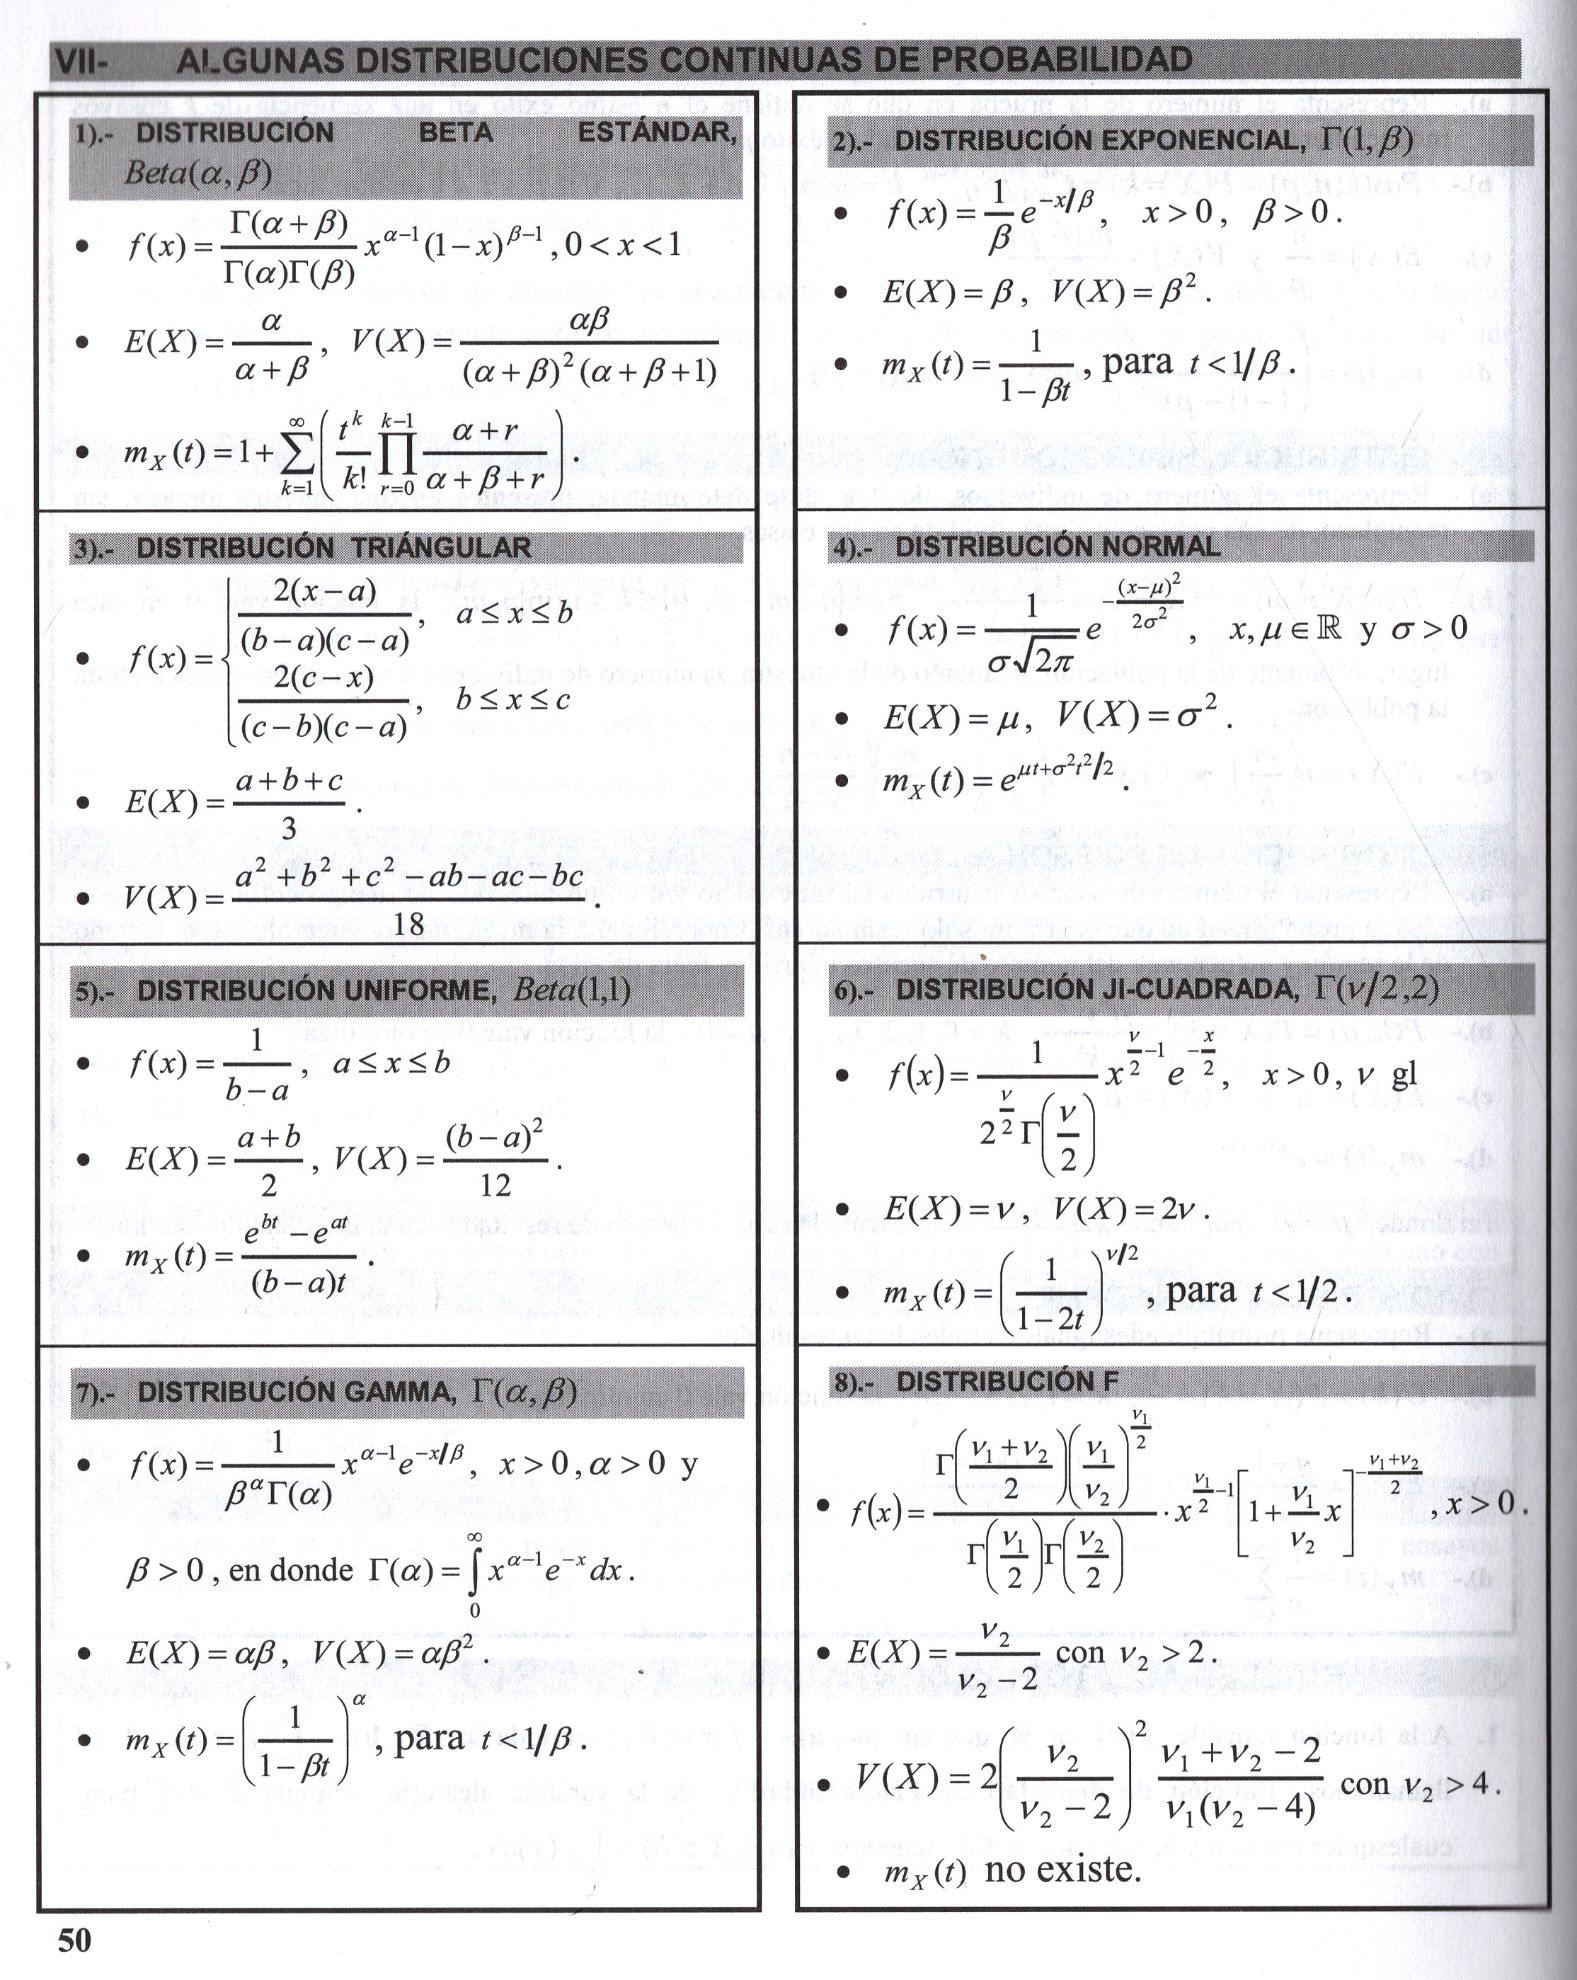 VII- ALGUNAS DISTRIBUCIONES CONTINUAS DE PROBABILIDAD
1).- DISTRIBUCIÓN BETA ESTÁNDAR,
Beta(α, β)
• f(x) = \frac{Γ(α + β)}{Γ(α)Γ(β)} x^{α−1}(1−x)^{β−1}, 0 < x < 1
• E(X) = \frac{α}{α + β}, V(X) = \frac{αβ}{(α + β)^2(α + β + 1)}
• m_X(t) = 1 + \sum_{k=1}^{∞} \left( \frac{t^k}{k!} \prod_{r=0}^{k−1} \frac{α + r}{α + β + r} \right).
2).- DISTRIBUCIÓN EXPONENCIAL, Γ(1, β)
• f(x) = \frac{1}{β} e^{−x/β}, x > 0, β > 0.
• E(X) = β, V(X) = β^2.
• m_X(t) = \frac{1}{1 − βt}, para t < 1/β.
3).- DISTRIBUCIÓN TRIÁNGULAR
• f(x) = \begin{cases} \frac{2(x − a)}{(b − a)(c − a)}, & a ≤ x ≤ b \\ \frac{2(c − x)}{(c − b)(c − a)}, & b ≤ x ≤ c \end{cases}
• E(X) = \frac{a + b + c}{3}.
• V(X) = \frac{a^2 + b^2 + c^2 − ab − ac − bc}{18}.
4).- DISTRIBUCIÓN NORMAL
• f(x) = \frac{1}{σ\sqrt{2π}} e^{−\frac{(x−μ)^2}{2σ^2}}, x, μ ∈ ℝ y σ > 0
• E(X) = μ, V(X) = σ^2.
• m_X(t) = e^{μt+σ^2t^2/2}.
5).- DISTRIBUCIÓN UNIFORME, Beta(1,1)
• f(x) = \frac{1}{b − a}, a ≤ x ≤ b
• E(X) = \frac{a + b}{2}, V(X) = \frac{(b − a)^2}{12}.
• m_X(t) = \frac{e^{bt} − e^{at}}{(b − a)t}.
6).- DISTRIBUCIÓN JI-CUADRADA, Γ(ν/2,2)
• f(x) = \frac{1}{2^{\frac{ν}{2}} Γ\left(\frac{ν}{2}\right)} x^{\frac{ν}{2}−1} e^{−\frac{x}{2}}, x > 0, ν gl
• E(X) = ν, V(X) = 2ν.
• m_X(t) = \left( \frac{1}{1 − 2t} \right)^{ν/2}, para t < 1/2.
7).- DISTRIBUCIÓN GAMMA, Γ(α, β)
• f(x) = \frac{1}{β^α Γ(α)} x^{α−1} e^{−x/β}, x > 0, α > 0 y
β > 0, en donde Γ(α) = \int_0^∞ x^{α−1} e^{−x} dx.
• E(X) = αβ, V(X) = αβ^2.
• m_X(t) = \left( \frac{1}{1 − βt} \right)^α, para t < 1/β.
8).- DISTRIBUCIÓN F
• f(x) = \frac{Γ\left(\frac{ν_1 + ν_2}{2}\right)\left(\frac{ν_1}{ν_2}\right)^{\frac{ν_1}{2}}}{Γ\left(\frac{ν_1}{2}\right)Γ\left(\frac{ν_2}{2}\right)} · x^{\frac{ν_1}{2}−1} \left[1 + \frac{ν_1}{ν_2} x\right]^{−\frac{ν_1+ν_2}{2}}, x > 0.
• E(X) = \frac{ν_2}{ν_2 − 2} con ν_2 > 2.
• V(X) = 2\left(\frac{ν_2}{ν_2 − 2}\right)^2 \frac{ν_1 + ν_2 − 2}{ν_1(ν_2 − 4)} con ν_2 > 4.
• m_X(t) no existe.
50